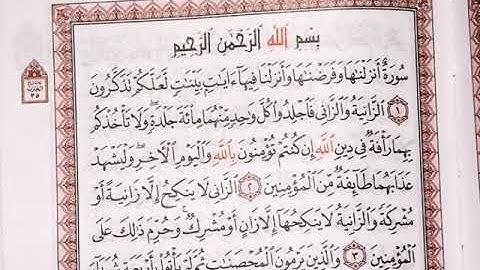 بِسْمِ ٱللَّهِ ٱلرَّحْمَٰنِ ٱلرَّحِيمِ
سُورَةٌ أَنزَلْنَٰهَا وَفَرَضْنَٰهَا وَأَنزَلْنَا فِيهَآ ءَايَٰتٍۭ بَيِّنَٰتٍ لَّعَلَّكُمْ تَذَكَّرُونَ
١ ٱلزَّانِيَةُ وَٱلزَّانِى فَٱجْلِدُوا۟ كُلَّ وَٰحِدٍ مِّنْهُمَا مِا۟ئَةَ جَلْدَةٍ ۖ وَلَا تَأْخُذْكُم
بِهِمَا رَأْفَةٌ فِى دِينِ ٱللَّهِ إِن كُنتُمْ تُؤْمِنُونَ بِٱللَّهِ وَٱلْيَوْمِ ٱلْءَاخِرِ ۖ وَلْيَشْهَدْ
عَذَابَهُمَا طَآئِفَةٌ مِّنَ ٱلْمُؤْمِنِينَ ٢ ٱلزَّانِى لَا يَنكِحُ إِلَّا زَانِيَةً أَوْ
مُشْرِكَةً وَٱلزَّانِيَةُ لَا يَنكِحُهَآ إِلَّا زَانٍ أَوْ مُشْرِكٌ ۚ وَحُرِّمَ ذَٰلِكَ عَلَى
ٱلْمُؤْمِنِينَ ٣ وَٱلَّذِينَ يَرْمُونَ ٱلْمُحْصَنَٰتِ ثُمَّ لَمْ يَأْتُوا۟ بِأَرْبَعَةِ شُهَدَآءَ